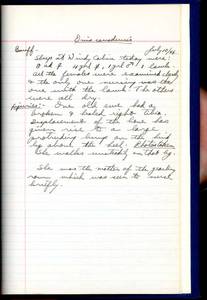 Ovis canadensis
July 10/44
Banff. Sheep at Windy Cabin today were:
10 ad ♀
All the females were examined closely
& the only one nursing was the
one with the lamb. The others
were all dry.
Injuries: One old ewe had a
broken & healed right tibia.
Displacement of the bone has
given rise to a large
protruding lump on the hind
leg above the heel.
She walks unsteadily on that leg.
She was the mother of the
which was seen to nurse
briefly.